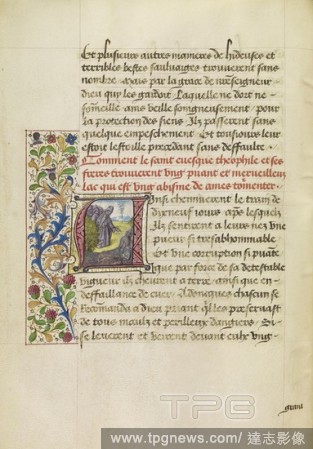 Et plusieurs autres manieres de hideuses et
terribles bestes sauluaiges trouuerent sans
nombre. Mais par la grace de nreseigneur
dieu quy les gardoit Laquelle ne dort ne
sommeille ains veille soingneusement pour
la protection des siens Ilz passerent sans
quelque empeschement Et tousiours leur
estoit lestoille precedant sans deffaulte.
Comment le saint euesque theophile et ses
freres trouuerent vng puant et merueilleux
lac qui est vng abisme de ames tormenter.
Ainsi cheminerent le train de
dixneuf iours apres lesquelz
Ilz sentirent a leurs nez vne
pueur si tresabhominable
Et vne corruption si puante
que par force de sa detestable
vigueur ilz cheurent a terre ainsi que en
deffaillance de cuer Adoncques chascun se
Recommanda a dieu priant quil les preseruast
de tous maulz et perilleux dangiers Si
se leuerent et veirent deuant eulx vng
TPG
www.tpgnews.com/達志影像